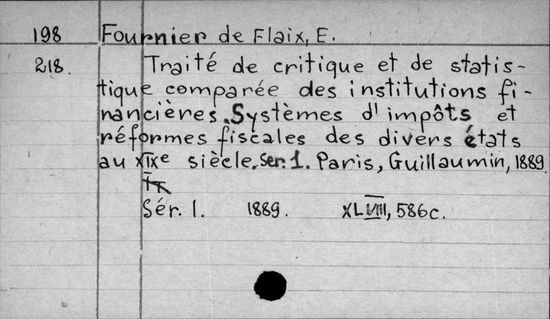 198 Fournier de Flaix, E.
218. Traité de critique et de statis-
tique comparée des institutions fi-
nancières. Systèmes d'impôts et
réformes fiscales des divers états
au XIXe siècle. Ser. 1. Paris, Guillaumin, 1889.
Sér. 1. 1889. XLVIII, 586c.